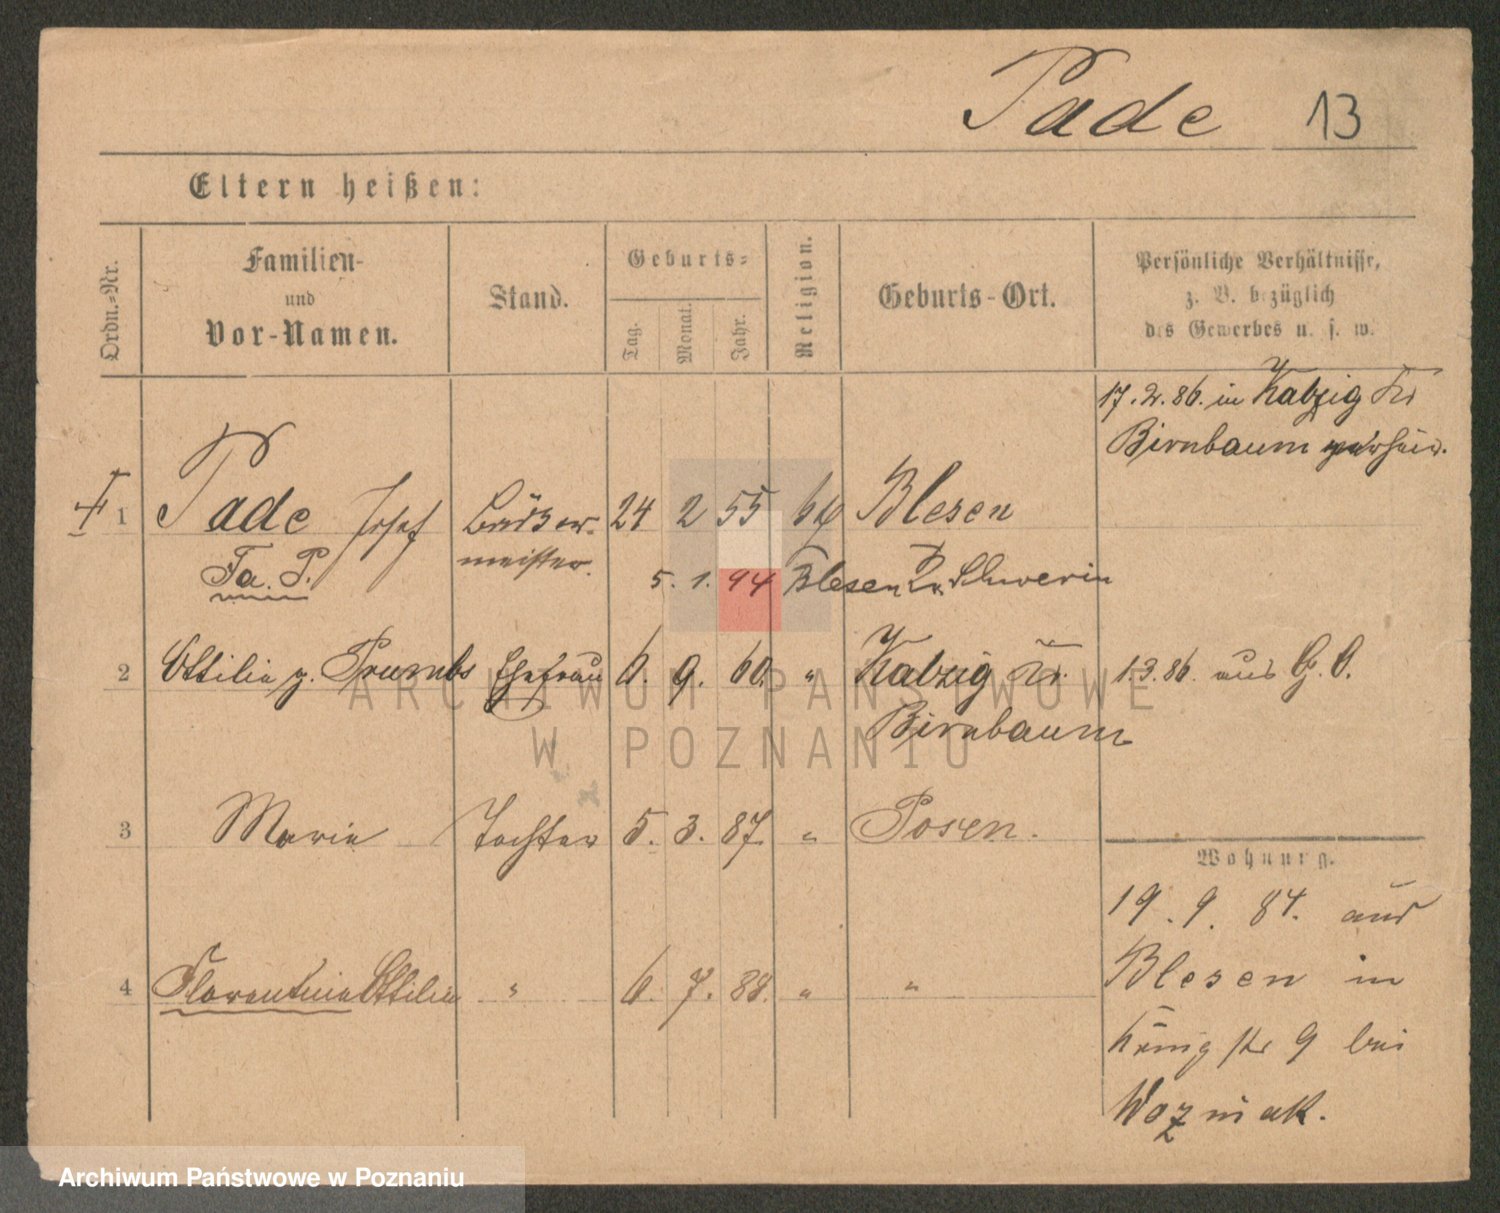 Pade 13
Eltern heißen:
Ordn.-Nr.
Familien-
und
Vor-Namen.
Stand.
Geburts-
Tag.
Monat.
Jahr.
Religion.
Geburts-Ort.
Persönliche Verhältnisse,
z. B. bezüglich
des Gewerbes u. s. w.
17. 2. 86. in Katzig Kr
Birnbaum
1 Pade Josef 24 2 55 Blesen
meister.
Fa. P.
5. 1. 94 Blesen Schwerin
2 Ottilie g. Prumbs Ehefrau 6. 9. 60. " Katzig Kr. 1.3.86. aus G. O.
Birnbaum
ARCHIWUM PAŃSTWOWE
W POZNANIU
3 Marie Tochter 5. 3. 87. " Posen.
Wohnung.
19. 9. 84. aus
4 Florentine Ottilie " 6. 7. 88. " "
Blesen in
Königstr 9 bei
Wozniak.
Archiwum Państwowe w Poznaniu